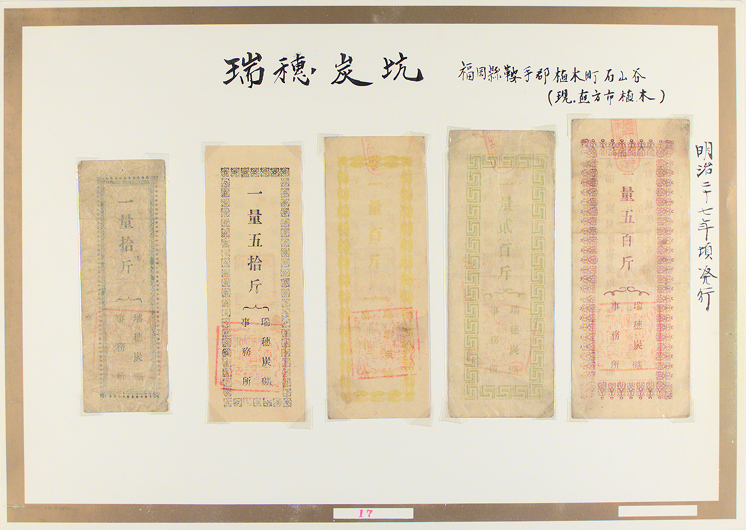 瑞穂炭坑
福岡縣鞍手郡植木町石山谷
(現.直方市植木)
明治二十七年頃発行
量五百斤
瑞穂炭礦
事務所
一量貳百斤
瑞穂炭礦
事務所
一量百斤
一量五拾斤
瑞穂炭礦
事務所
一量拾斤
瑞穂炭礦
事務所
17